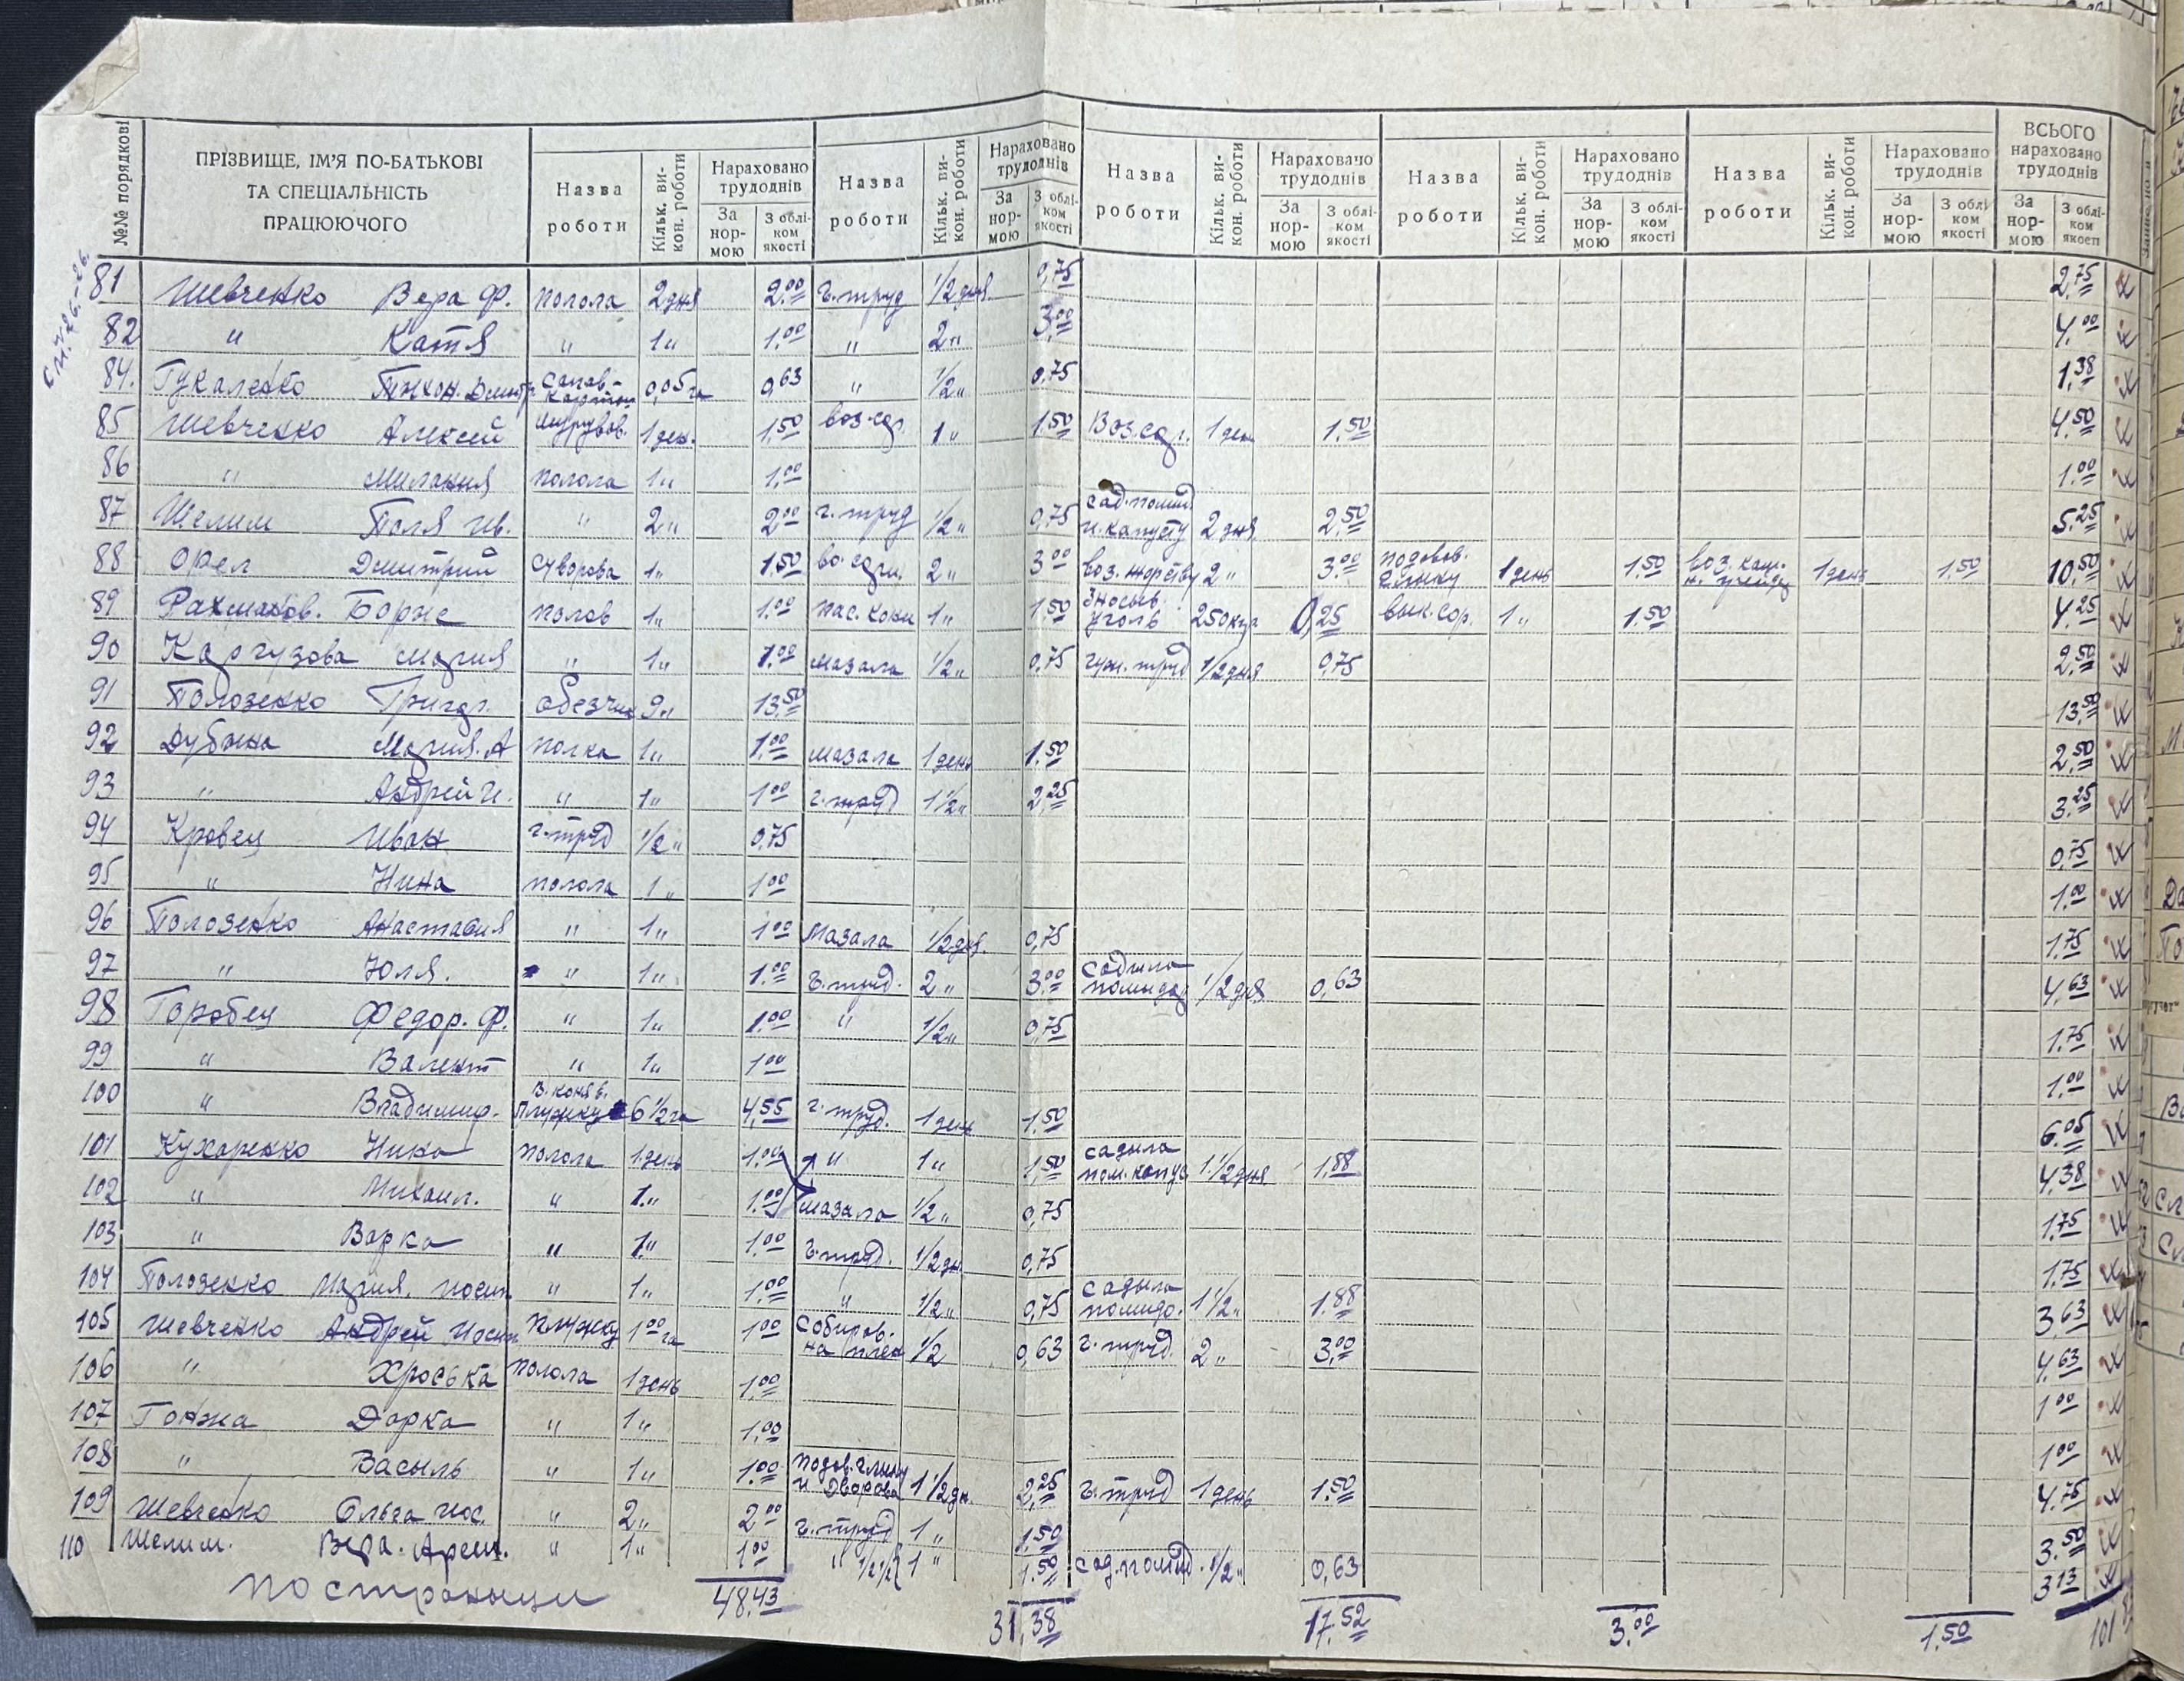 №№ порядкові ПРІЗВИЩЕ, ІМ'Я ПО-БАТЬКОВІ ТА СПЕЦІАЛЬНІСТЬ ПРАЦЮЮЧОГО Назва роботи Кільк. ви-кон. роботи Нараховано трудоднів За нор-мою З облі-ком якості Назва роботи Кільк. ви-кон. роботи Нараховано трудоднів За нор-мою З облі-ком якості Назва роботи Кільк. ви-кон. роботи Нараховано трудоднів За нор-мою З облі-ком якості Назва роботи Кільк. ви-кон. роботи Нараховано трудоднів За нор-мою З облі-ком якості Назва роботи Кільк. ви-кон. роботи Нараховано трудоднів За нор-мою З облі-ком якості ВСЬОГО нараховано трудоднів За нор-мою З облі-ком якості
81 Шевченко Вера Ф. полола 2 дня 2.00 г.труд 1/2 дня 0,75 2,75
82 " Катя " 1" 1.00 " 2" 3.00 4.00
84. Гукаленко Тихон. Дмитр 0,05 га 0,63 " 1/2" 0,75 1,38
85 Шевченко Алексей 1 ден. 1,50 воз.сор. 1" 1,50 Воз.сор. 1 ден 1.50 4,50
86 " Милания полола 1" 1.00 1.00
87 Шелим Поля Ив. " 2" 2.00 г.труд 1/2" 0,75 сад.помид. и.капусту 2 дня 2.50 5,25
88 Орел Дмитрий суворова 1" 1.50 2" 3.00 2" 3.00 подвов. глыну 1 день 1.50 1 день 1,50 10,50
89 Рахманов. Борис полов 1" 1.00 пас. кони 1" 1.50 уголь 250 кг 0,25 вык.сор. 1" 1.50 4.25
90 Каргузова Мария " 1" 1.00 мазала 1/2" 0,75 гуж.труд 1/2 дня 0,75 2,50
91 Полозенко Григор. обезчик 9" 13,50 13,50
92 Дубина Мария. А полка 1" 1.00 мазала 1 день 1.50 2,50
93 " Андрей И. " 1" 1.00 г.труд 1 1/2" 2,25 3.25
94 Кровец Иван г.труд 1/2" 0,75 0,75
95 " Нина полола 1" 1.00 1.00
96 Полозенко Анастасия " 1" 1.00 мазала 1/2 дня. 0,75 1.75
97 " Юля. " 1" 1.00 г.труд. 2" 3.00 садила помидор 1/2 дня 0,63 4,63
98 Горобец Федор. Ф. " 1" 1.00 " 1/2" 0,75 1.75
99 " Валент " 1" 1.00 1.00
100 " Владимир. Плужку 6 1/2 га 4,55 г.труд. 1 ден 1.50 6.05
101 Кухаренко Нина полола 1 день 1.00 " 1" 1,50 садыла пом.капус 1 1/2 дня 1,88 4,38
102 " Михаил. " 1" 1.00 мазала 1/2" 0,75 1.75
103 " Варка " 1" 1.00 г.труд. 1/2 дн. 0,75 1.75
104 Полозенко Мария. Иосип " 1" 1.00 " 1/2" 0,75 садыла помидо. 1 1/2" 1.88 3,63
105 Шевченко Андрей Иосип Плужку 1.00 га 1.00 собиров. 1/2 0,63 г.труд. 2" 3.00 4,63
106 " Хроська полола 1 день 1.00 1.00
107 Гонжа Дарка " 1" 1.00 1.00
108 " Василь " 1" 1.00 подов.глыну 1 1/2 дн. 2,25 г.труд 1 день 1.50 4.75
109 Шевченко Ольга Иос. " 2" 2.00 г.труд 1" 1.50 3.50
110 Шелим. Вера. Арет. " 1" 1.00 " 1" 1.50 сад.помид. 1/2" 0,63 3.13
по страници 48,43 31,38 17.52 3.00 1.50 101